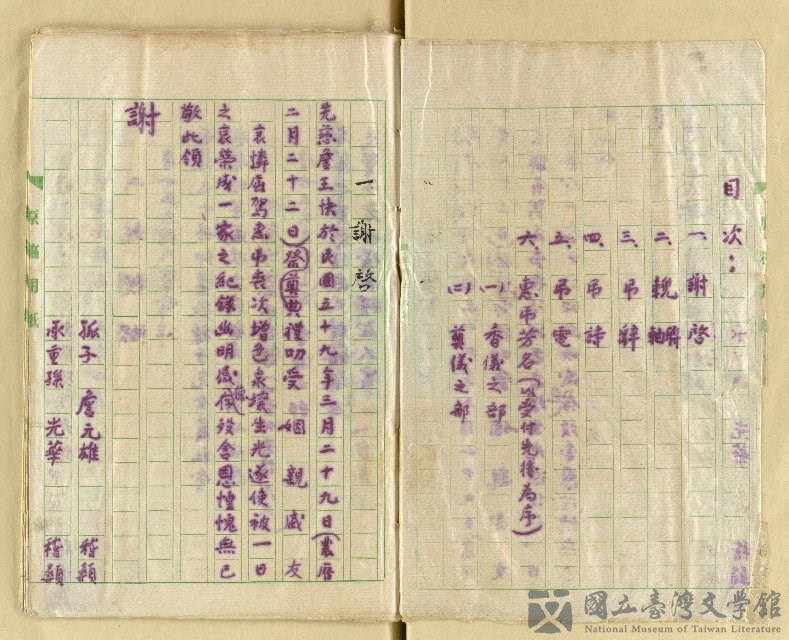 目次：
一、謝啓
二、輓聯軸
三、吊辭
四、吊詩
五、吊電
六、惠吊芳名（以受付先後為序）
㈠香儀之部
㈡奠儀之部
一謝啓
先慈詹王快於民國五十九年三月二十九日（農曆
二月二十二日）發奠典禮叨受姻親戚友
哀憐屈駕惠吊喪次增色泉壤生光遂使被一日
之哀榮成一家之紀錄幽明感存歿含恩惶愧無已
敬此領
謝
孤子 詹元雄 稽顙
承重孫 光華 稽顙
原稿用紙
國立臺灣文學館
National Museum of Taiwan Literature